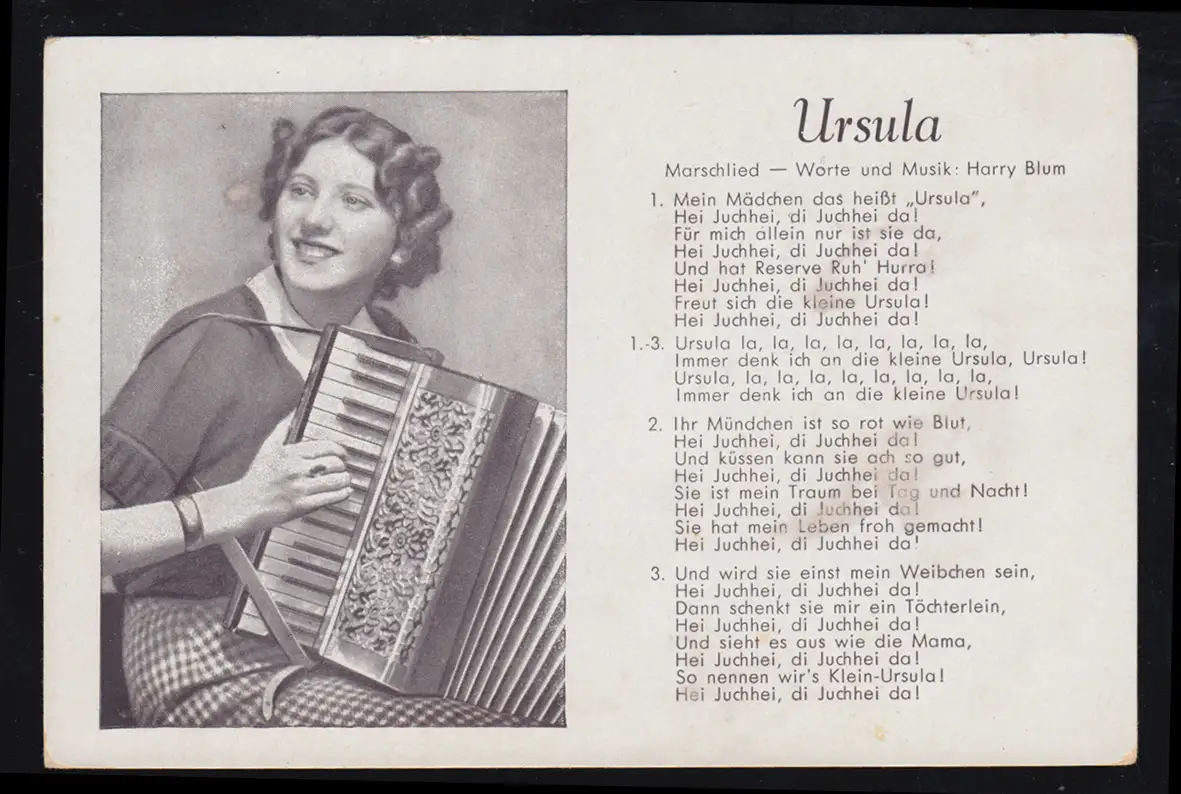 Ursula
Marschlied — Worte und Musik: Harry Blum
1. Mein Mädchen das heißt „Ursula",
Hei Juchhei, di Juchhei da!
Für mich allein nur ist sie da,
Hei Juchhei, di Juchhei da!
Und hat Reserve Ruh' Hurra!
Hei Juchhei, di Juchhei da!
Freut sich die kleine Ursula!
Hei Juchhei, di Juchhei da!
1.-3. Ursula la, la, la, la, la, la, la, la,
Immer denk ich an die kleine Ursula, Ursula!
Ursula, la, la, la, la, la, la, la, la,
Immer denk ich an die kleine Ursula!
2. Ihr Mündchen ist so rot wie Blut,
Hei Juchhei, di Juchhei da!
Und küssen kann sie ach so gut,
Hei Juchhei, di Juchhei da!
Sie ist mein Traum bei Tag und Nacht!
Hei Juchhei, di Juchhei da!
Sie hat mein Leben froh gemacht!
Hei Juchhei, di Juchhei da!
3. Und wird sie einst mein Weibchen sein,
Hei Juchhei, di Juchhei da!
Dann schenkt sie mir ein Töchterlein,
Hei Juchhei, di Juchhei da!
Und sieht es aus wie die Mama,
Hei Juchhei, di Juchhei da!
So nennen wir's Klein-Ursula!
Hei Juchhei, di Juchhei da!